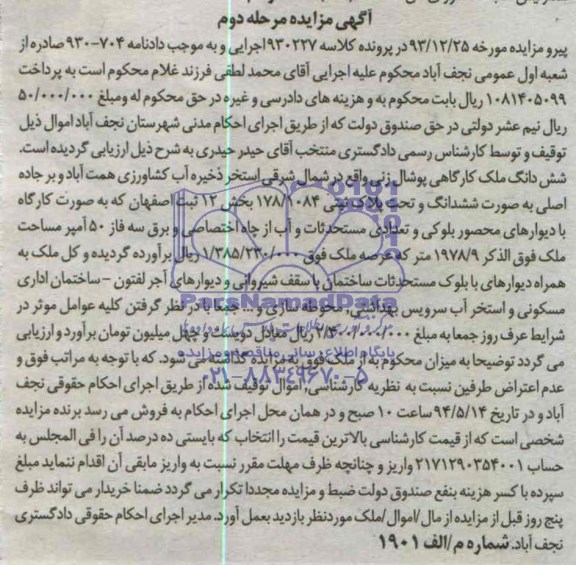 آگهی مزایده مرحله دوم
پیرو مزایده مورخه ۹۳/۱۲/۲۵ در پرونده کلاسه ۹۳۰۲۲۷ اجرایی و به موجب دادنامه ۷۰۴-۹۳۰ صادره از
شعبه اول عمومی نجف آباد محکوم علیه اجرایی آقای محمد لطفی فرزند غلام محکوم است به پرداخت
۱۰۸۱۴۰۵۰۹۹ ریال بابت محکوم به و هزینه های دادرسی و غیره در حق محکوم له ومبلغ ۵۰/۰۰۰/۰۰۰
ریال نیم عشر دولتی در حق صندوق دولت که از طریق اجرای احکام مدنی شهرستان نجف آباد اموال ذیل
توقیف و توسط کارشناس رسمی دادگستری منتخب آقای حیدر حیدری به شرح ذیل ارزیابی گردیده است.
شش دانگ ملک کارگاهی پوشال زنی واقع در شمال شرقی استخر ذخیره آب کشاورزی همت آباد و بر جاده
اصلی به صورت ششدانگ و تحت پلاک ثبتی ۱۷۸/۱۰۸۴ بخش ۱۲ ثبت اصفهان که به صورت کارگاه
با دیوارهای محصور بلوکی و تعدادی مستحدثات و آب از چاه اختصاصی و برق سه فاز ۵۰ آمپر مساحت
ملک فوق الذکر ۱۹۷۸/۹ متر که عرصه ملک فوق ۱/۳۸۵/۲۳۰/۰۰۰ ریال برآورده گردیده و کل ملک به
همراه دیوارهای با بلوک مستحدثات ساختمان با سقف شیروانی و دیوارهای آجر لفتون - ساختمان اداری
مسکونی و استخر آب سرویس بهداشتی، محوطه سازی و... جمعا با در نظر گرفتن کلیه عوامل موثر در
شرایط عرف روز جمعا به مبلغ ریال معادل دویست و چهل میلیون تومان برآورد و ارزیابی
می گردد توضیحا به میزان محکوم به از ملک فوق به مزایده گذاشته می شود. که با توجه به مراتب فوق و
عدم اعتراض طرفین نسبت به نظریه کارشناسی، اموال توقیف شده از طریق اجرای احکام حقوقی نجف
آباد و در تاریخ ۹۴/۵/۱۴ ساعت ۱۰ صبح و در همان محل اجرای احکام به فروش می رسد برنده مزایده
شخصی است که از قیمت کارشناسی بالاترین قیمت را انتخاب که بایستی ده درصد آن را فی المجلس به
حساب ۲۱۷۱۲۹۰۳۵۴۰۰۱ واریز و چنانچه ظرف مهلت مقرر نسبت به واریز مابقی آن اقدام ننماید مبلغ
سپرده با کسر هزینه بنفع صندوق دولت ضبط و مزایده مجددا تکرار می گردد ضمنا خریدار می تواند ظرف
پنج روز قبل از مزایده از مال/اموال/ملک موردنظر بازدید بعمل آورد. مدیر اجرای احکام حقوقی دادگستری
نجف آباد. شماره م/الف ۱۹۰۱
ParsNamadData
پایگاه اطلاع رسانی مناقصه و مزایده
۰۲۱-۸۸۳۴۹۶۷۰-۵